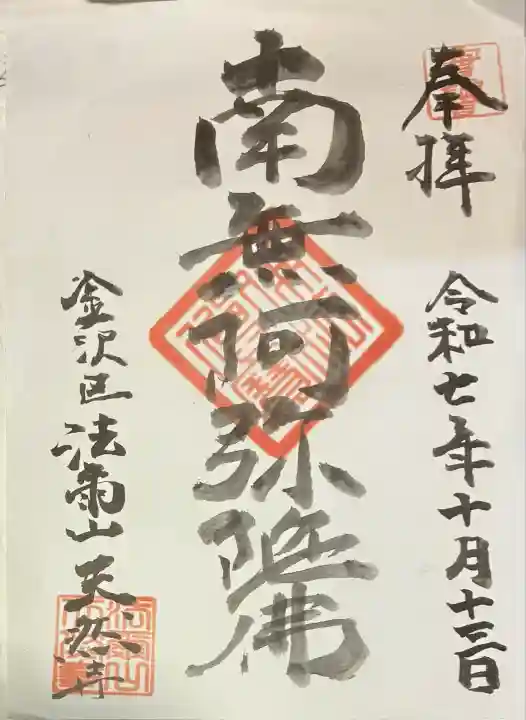 奉拝
令和七年十月十三日
南無阿弥陀佛
金沢区法雨山天然寺